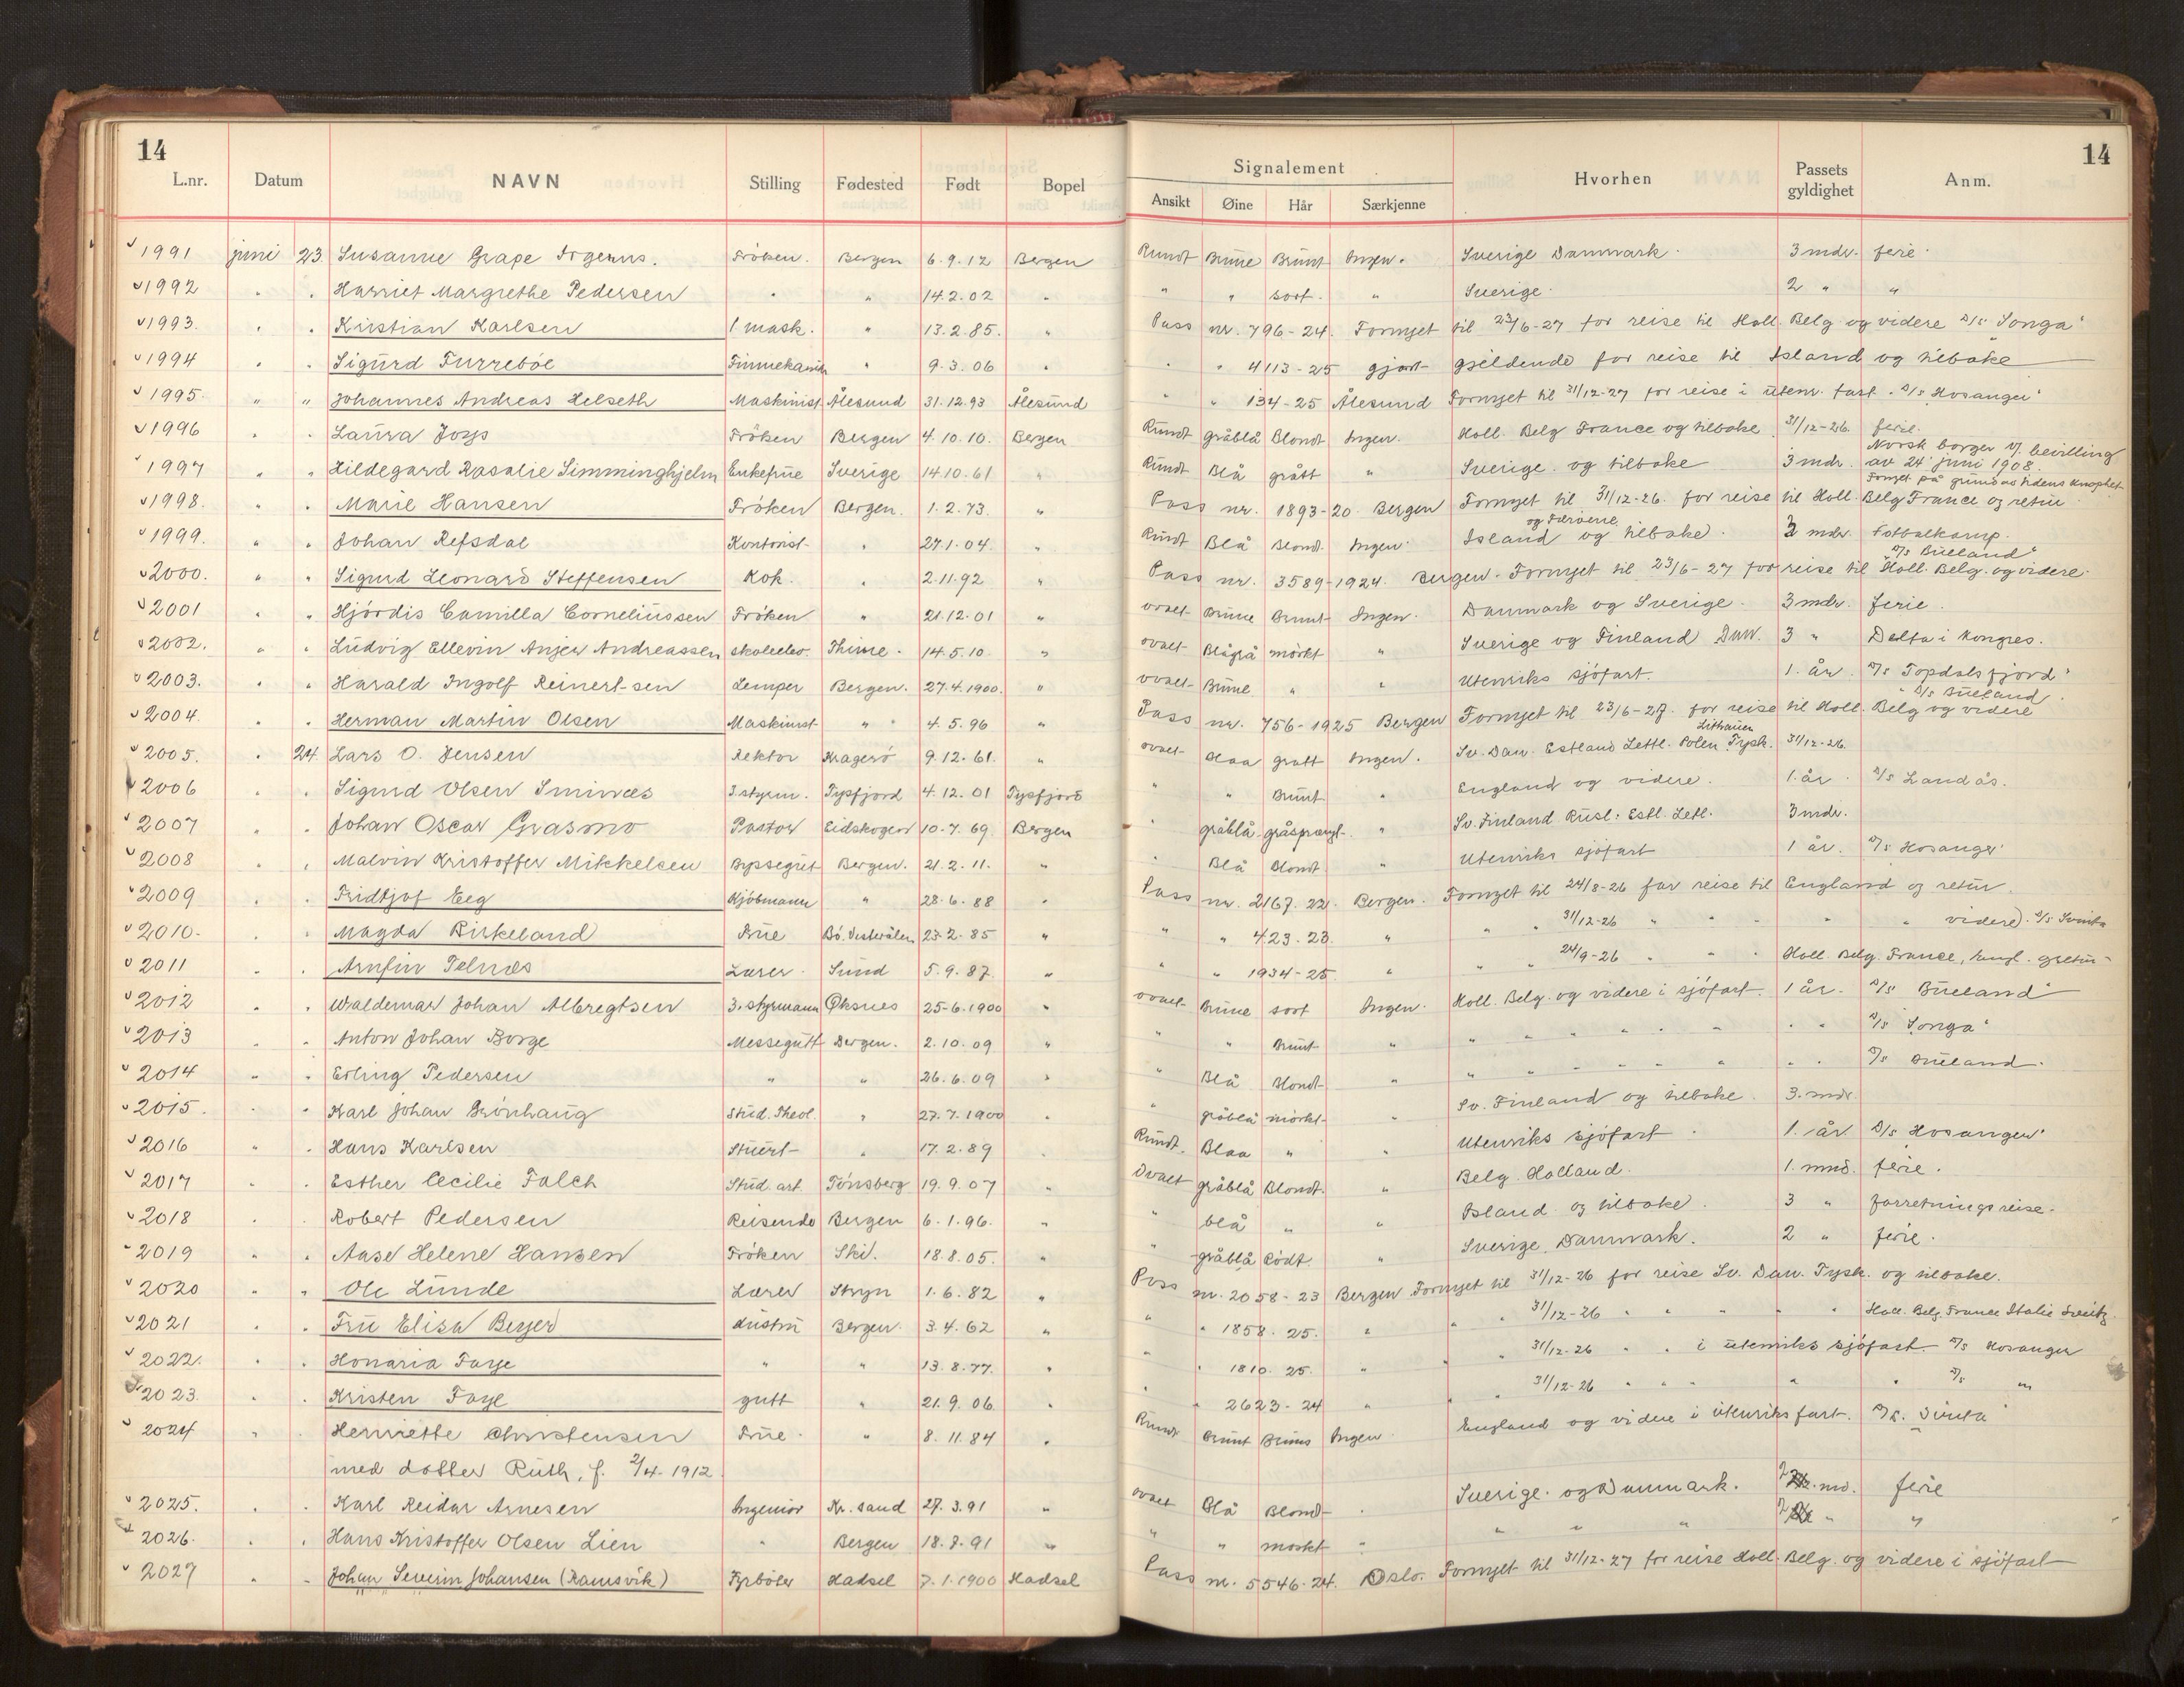 14
L.nr. Datum NAVN Stilling Fødested Født Bopel
1991 juni 23. Susanne Grape Frøken. Bergen 6.9.12 Bergen
1992 " " Harriet Margrethe Pedersen " " 14.2.02 "
1993. " " Kristian Karlsen 1 mask. " 13.2.85. "
1994 " " Sigurd Furrebøe " 9.3.06 "
1995. " " Johannes Andreas Helseth Maskinist Ålesund 31.12.93 Ålesund
1996 " " Laura Joys Frøken Bergen 4.10.10. Bergen
1997 " " Hildegard Rosalie Simminghjelm Enkefrue Sverige 14.10.61 "
1998. " " Marie Hansen Frøken Bergen. 1.2.73. "
1999. " " Johan Refsdal Kontorist " 27.1.04. "
2000. " " Sigurd Leonard Steffensen Kok. " 2.11.92 "
2001 " " Hjørdis Camilla Corneliussen Frøken " 21.12.01 "
2002. " " Ludvig Ellevin Anjer Andreassen skoleelev. Thime. 14.5.10 "
2003. " " Harald Ingolf Reinertsen Lemper Bergen. 27.4.1900. "
2004. " " Herman Martin Olsen Maskinist " 4.5.96 "
2005. " 24 Lars O. Jensen Rektor Kragerø 9.12.61. "
2006 " " Sigurd Olsen 3.styrm. Tysfjord 4.12.01 Tysfjord
2007 " " Johan Oscar Grasmo Pastor Eidskogen 10.7.69. Bergen
2008 " " Malvin Kristoffer Mikkelsen Byssegut Bergen. 21.2.11. "
2009 " " Fridtjof Eeg Kjøbmann " 28.6.88 "
2010. " " Magda Birkeland Frue Bø. Vesterålen 23.2.85 "
2011 " " Arnfin Telnæs Lærer. Sund 5.9.87. "
2012 " " Waldemar Johan Albregtsen 3.styrmann Øksnes 25.6.1900 "
2013 " " Anton Johan Borge Messegutt Bergen. 2.10.09 "
2014 " " Erling Pedersen " " 26.6.09 "
2015. " " Karl Johan Grønhaug Stud. Theol. " 27.7.1900 "
2016 " " Hans Karlsen Stuert " 17.2.89 "
2017 " " Esther Cecilie Falch Stud. art. Tønsberg 19.9.07 "
2018 " " Robert Pedersen Reisende Bergen 6.1.96. "
2019 " " Aase Helene Hansen Frøken Ski. 18.8.05. "
2020 " " Ole Lunde Lærer Stryn 1.6.82 "
2021 " " Fru Elisa Beyer Bergen. 3.4.62 "
2022. " " Honoria Faye " " 13.8.77. "
2023. " " Kristen Faye gutt " 21.9.06. "
2024 " " Henriette Christensen Frue. " 8.11.84 "
med datter Ruth, f. 2/4-1912
2025. " " Karl Reidar Arnesen Ingeniør Kr. sand 27.3.91 "
2026. " " Hans Kristoffer Olsen Lien " Bergen 18.7.91 "
2027 " " Johan Severin Johansen (Ramsvik) Fyrbøter Hadsel 7.1.1900 Hadsel
14
Signalement
Ansikt Øine Hår Særkjenne Hvorhen Passets gyldighet Anm.
Rundt Brune Brunt Ingen. Sverige Danmark. 3 mdr. ferie.
" " sort. " Sverige. 2 " "
Pass nr. 796-24. Fornyet til 23/6-27 for reise til Holl. Belg og videre D/s "Songa"
" " 4113-25 gjort gjeldende for reise til Island og tilbake
" " 134-25 Ålesund Fornyet til 31/12-27 for reise i utenr. fart. D/s "Hosanger"
Rundt gråblå Blondt Ingen. Holl. Belg France og tilbake 31/12-26. ferie.
Rundt Blå grått " Sverige og tilbake 3 mdr. Norsk borger if. bevilling
av 24 juni 1908.
Fornyet på grunn av tidens knaphet
Pass nr. 1893-20. Bergen Fornyet til 31/12-26. for reise til Holl. Belg France og retur
og Færøerne
Rundt Blå Blond. Ingen. Island og tilbake. 3 mdr. Fotbalkamp.
D/s Bueland"
Pass nr. 3589-1924. Bergen. Fornyet til 23/6-27 for reise til Holl. Belg. og videre.
ovalt Brune Brunt Ingen. Danmark og Sverige. 3 mdr. ferie.
ovalt Blågrå mørkt " Sverige og Finland Dan. 3 " Delta i kongres.
ovalt Brune " " Utenriks sjøfart. 1. år. D/s "Topdalsfjord"
D/s Bueland.
Pass nr. 756-1925 Bergen Fornyet til 23/6-27. for reise til Holl. Belg og videre
Lithauen
ovalt Blaa graat Ingen. Sv. Dan. Estland Lettl. Polen Tysk. 31/12-26.
" " Brunt " England og videre. 1. år. D/s Landås.
" gråblå gråsprengt. " Sv. Finland Rusl. Estl. Letl. 3 mdr.
" Blå Blondt " Utenriks sjøfart 1 år. D/s Hosanger"
Pass nr. 2167.22. Bergen. Fornyet til 24/8-26 for reise til England og retur.
" " 423.23. " " " 31/12-26 " " " " " videre. D/s
" " 1934-25. " " " 24/9-26 " " " Holl. Belg. France, Engl.
ovalt Brune sort Ingen. Holl. Belg. og videre i sjøfart. 1 år. D/s "Bueland"
" " Brunt " " " " " " " " D/s "Songa"
" Blå Blondt " " " " " " " " D/s Bueland.
" gråblå mørkt " Sv. Finland og tilbake. 3. mdr.
Rundt. Blaa " " Utenriks sjøfart. 1. år. D/s "Hosanger"
Ovalt gråblå Blondt. " Belg. Holland. 1. mnd. ferie.
" blå " " Island og tilbake. 3 " forretningsreise.
" gråblå rødt. " Sverige. Danmark. 2 " ferie.
Pass nr. 2058-23 Bergen Fornyet til 31/12-26 for reise Sv. Dan. Tysk. og tilbake.
" " 1858.25. " " " 31/12-26 " " " " " Holl. Belg. France Italie Sveitz.
" " 1810.25. " " " 31/12-26 " " i utenriks sjøfart D/s Hosanger
" " 2623-24 " " " 31/12-26 " " " " " D/s "
Rundt Brunt Brune Ingen. England og videre i utenriksfart. D/s.
ovalt Blå Blondt " Sverige og Danmark. 2 md. ferie
" " mørkt " " " " 2 " "
Pass nr. 5546-24. Oslo. Fornyet til 31/12-27 for reise Holl. Belg. og videre i sjøfart